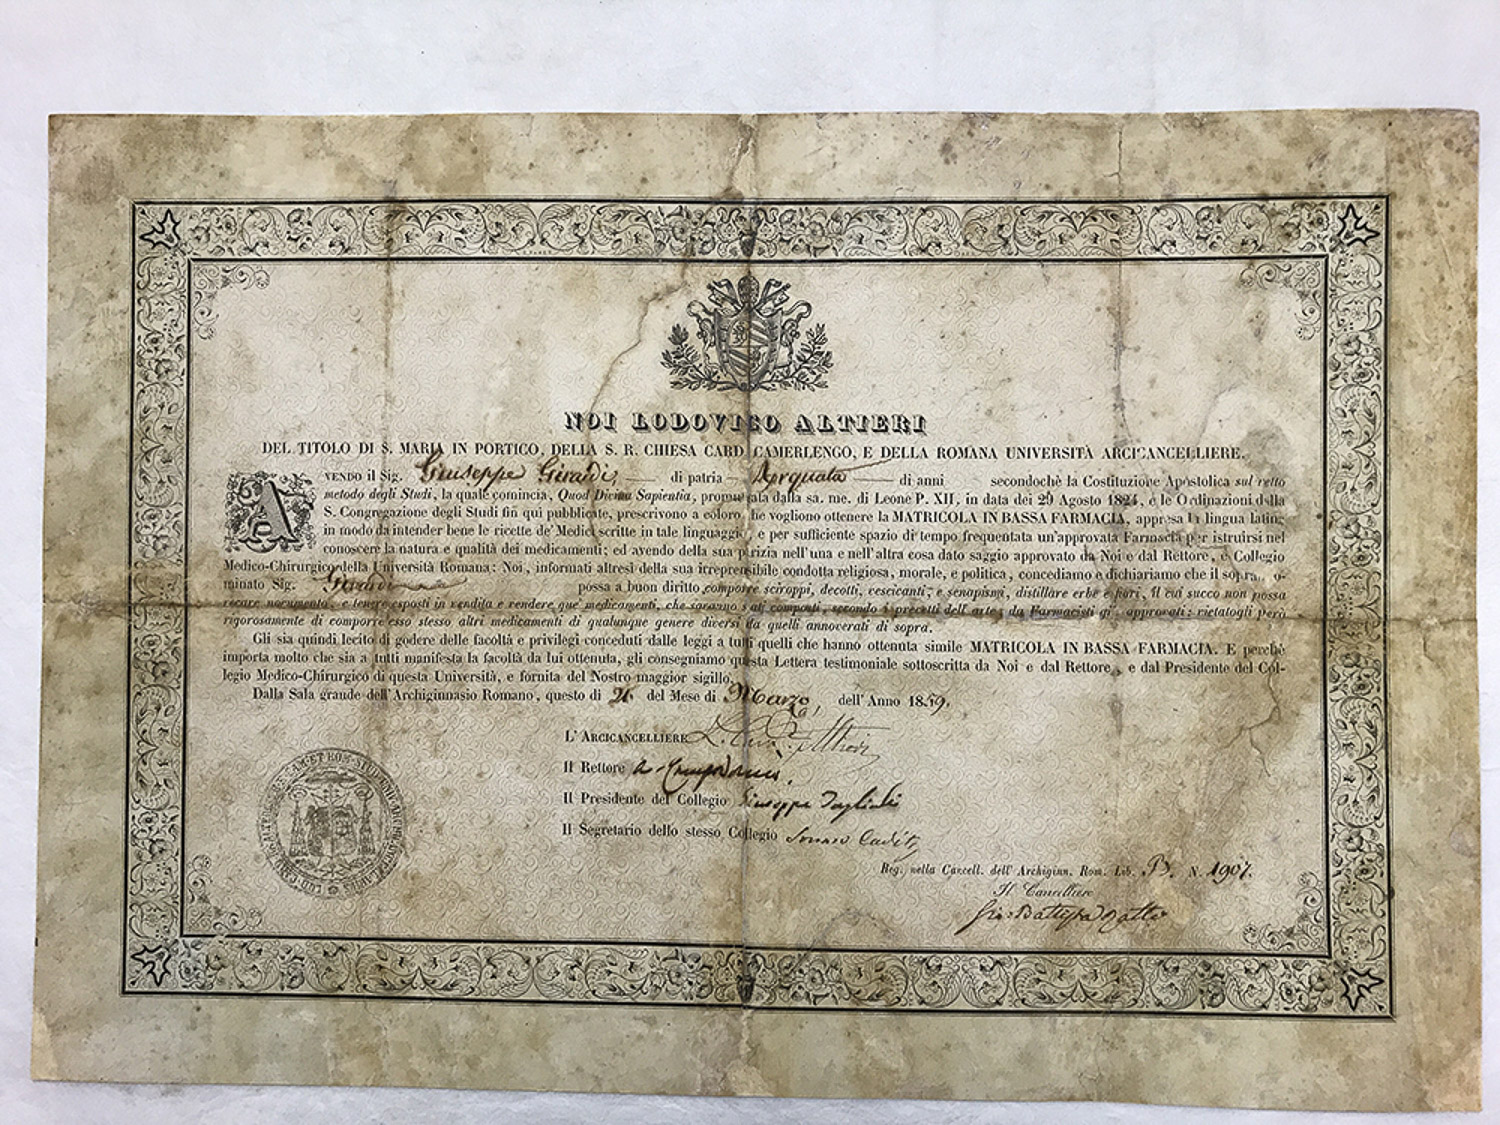 NOI LODOVICO ALTIERI
DEL TITOLO DI S. MARIA IN PORTICO, DELLA S. R. CHIESA CARD. CAMERLENGO, E DELLA ROMANA UNIVERSITÀ ARCICANCELLIERE.
AVENDO il Sig. Giuseppe Girardi, di patria Arquata di anni secondochè la Costituzione Apostolica sul retto
metodo degli Studi, la quale comincia, Quod Divina Sapientia, promulgata dalla sa. me. di Leone P. XII, in data dei 29 Agosto 1824, e le Ordinazioni della
S. Congregazione degli Studi fin qui pubblicate, prescrivono a coloro, che vogliono ottenere la MATRICOLA IN BASSA FARMACIA, appresa la lingua latina
in modo da intender bene le ricette de' Medici scritte in tale linguaggio, e per sufficiente spazio di tempo frequentata un'approvata Farmacia per istruirsi nel
conoscere la natura e qualità dei medicamenti; ed avendo della sua perizia nell'una e nell'altra cosa dato saggio approvato da Noi e dal Rettore, e Collegio
Medico-Chirurgico della Università Romana: Noi, informati altresì della sua irreprensibile condotta religiosa, morale, e politica, concediamo e dichiariamo che il sopra o-
minato Sig. Girardi possa a buon diritto comporre sciroppi, decotti, vescicanti, e senapismi, distillare erbe e fiori, il cui succo non possa
recare nocumento, e tenere esposti in vendita e rendere que' medicamenti, che saranno stati composti, secondo i precetti dell'arte, da Farmacisti già approvati: vietatogli però
rigorosamente di comporre esso stesso altri medicamenti di qualunque genere diversi da quelli annoverati di sopra.
Gli sia quindi lecito di godere delle facoltà e privilegi conceduti dalle leggi a tutti quelli che hanno ottenuta simile MATRICOLA IN BASSA FARMACIA. E perchè
importa molto che sia a tutti manifesta la facoltà da lui ottenuta, gli consegniamo questa Lettera testimoniale sottoscritta da Noi e dal Rettore, e dal Presidente del Col-
legio Medico-Chirurgico di questa Università, e fornita del Nostro maggior sigillo.
Dalla Sala grande dell'Archiginnasio Romano, questo di del Mese di Marzo, dell'Anno 1859.
L'ARCICANCELLIERE L. Card. Altieri
Il Rettore
Il Presidente del Collegio Giuseppe
Il Segretario dello stesso Collegio
Reg. nella Cancell. dell'Archiginn. Rom. Lib. B. N. 1907.
Il Cancelliere
Gio: Battista